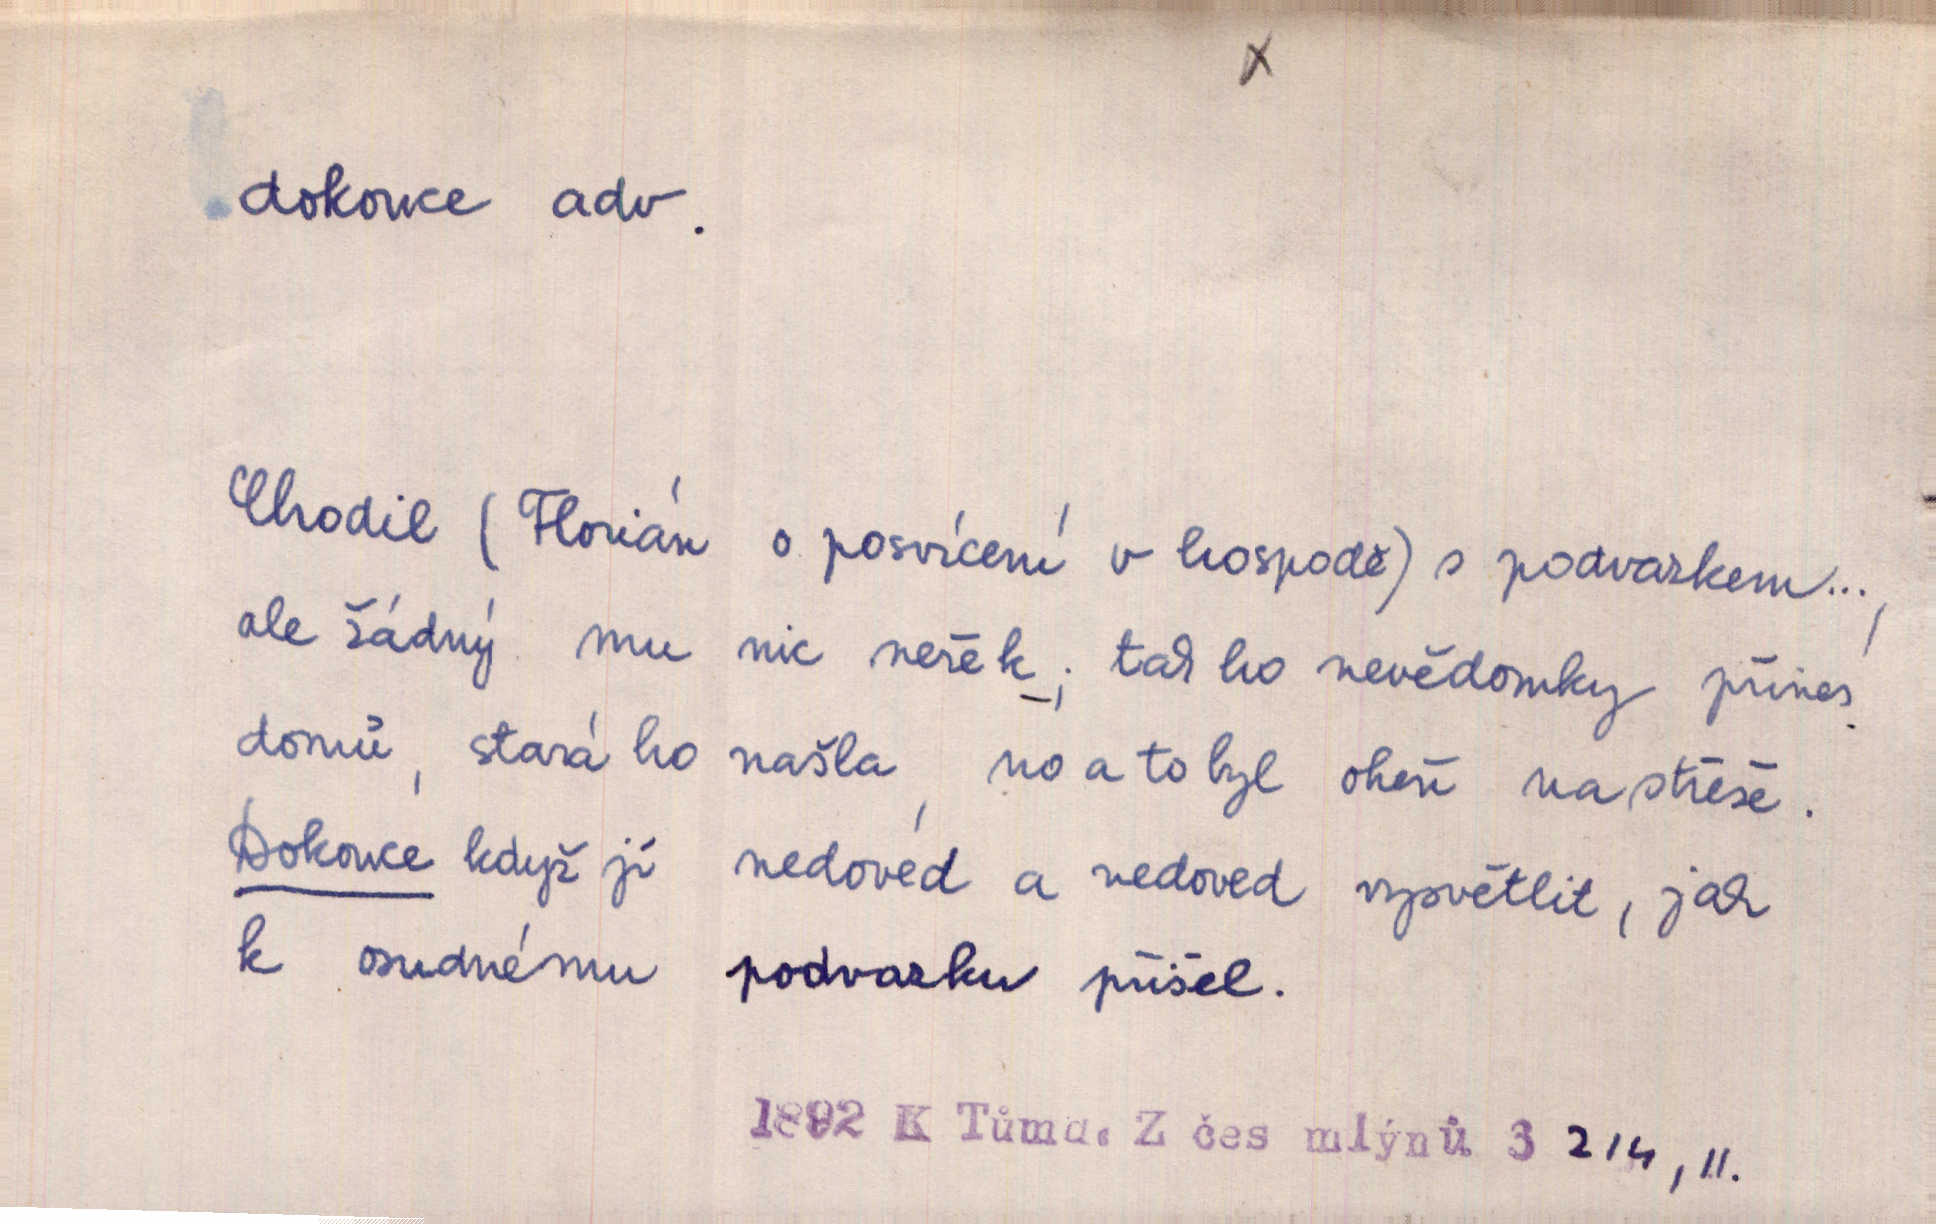 x
dokonce adv.
Chodil (Florián o posvícení v hospodě) s podvazkem...,
ale žádný mu nic neřek; tak ho nevědomky přines
domů, stará ho našla, no a to byl oheň na střeše.
Dokonce když jí nedověd a nedoved vysvětlit, jak
k osudnému podvazku přišel.
1892 K Tůma. Z čes mlýnů 3 214, II.